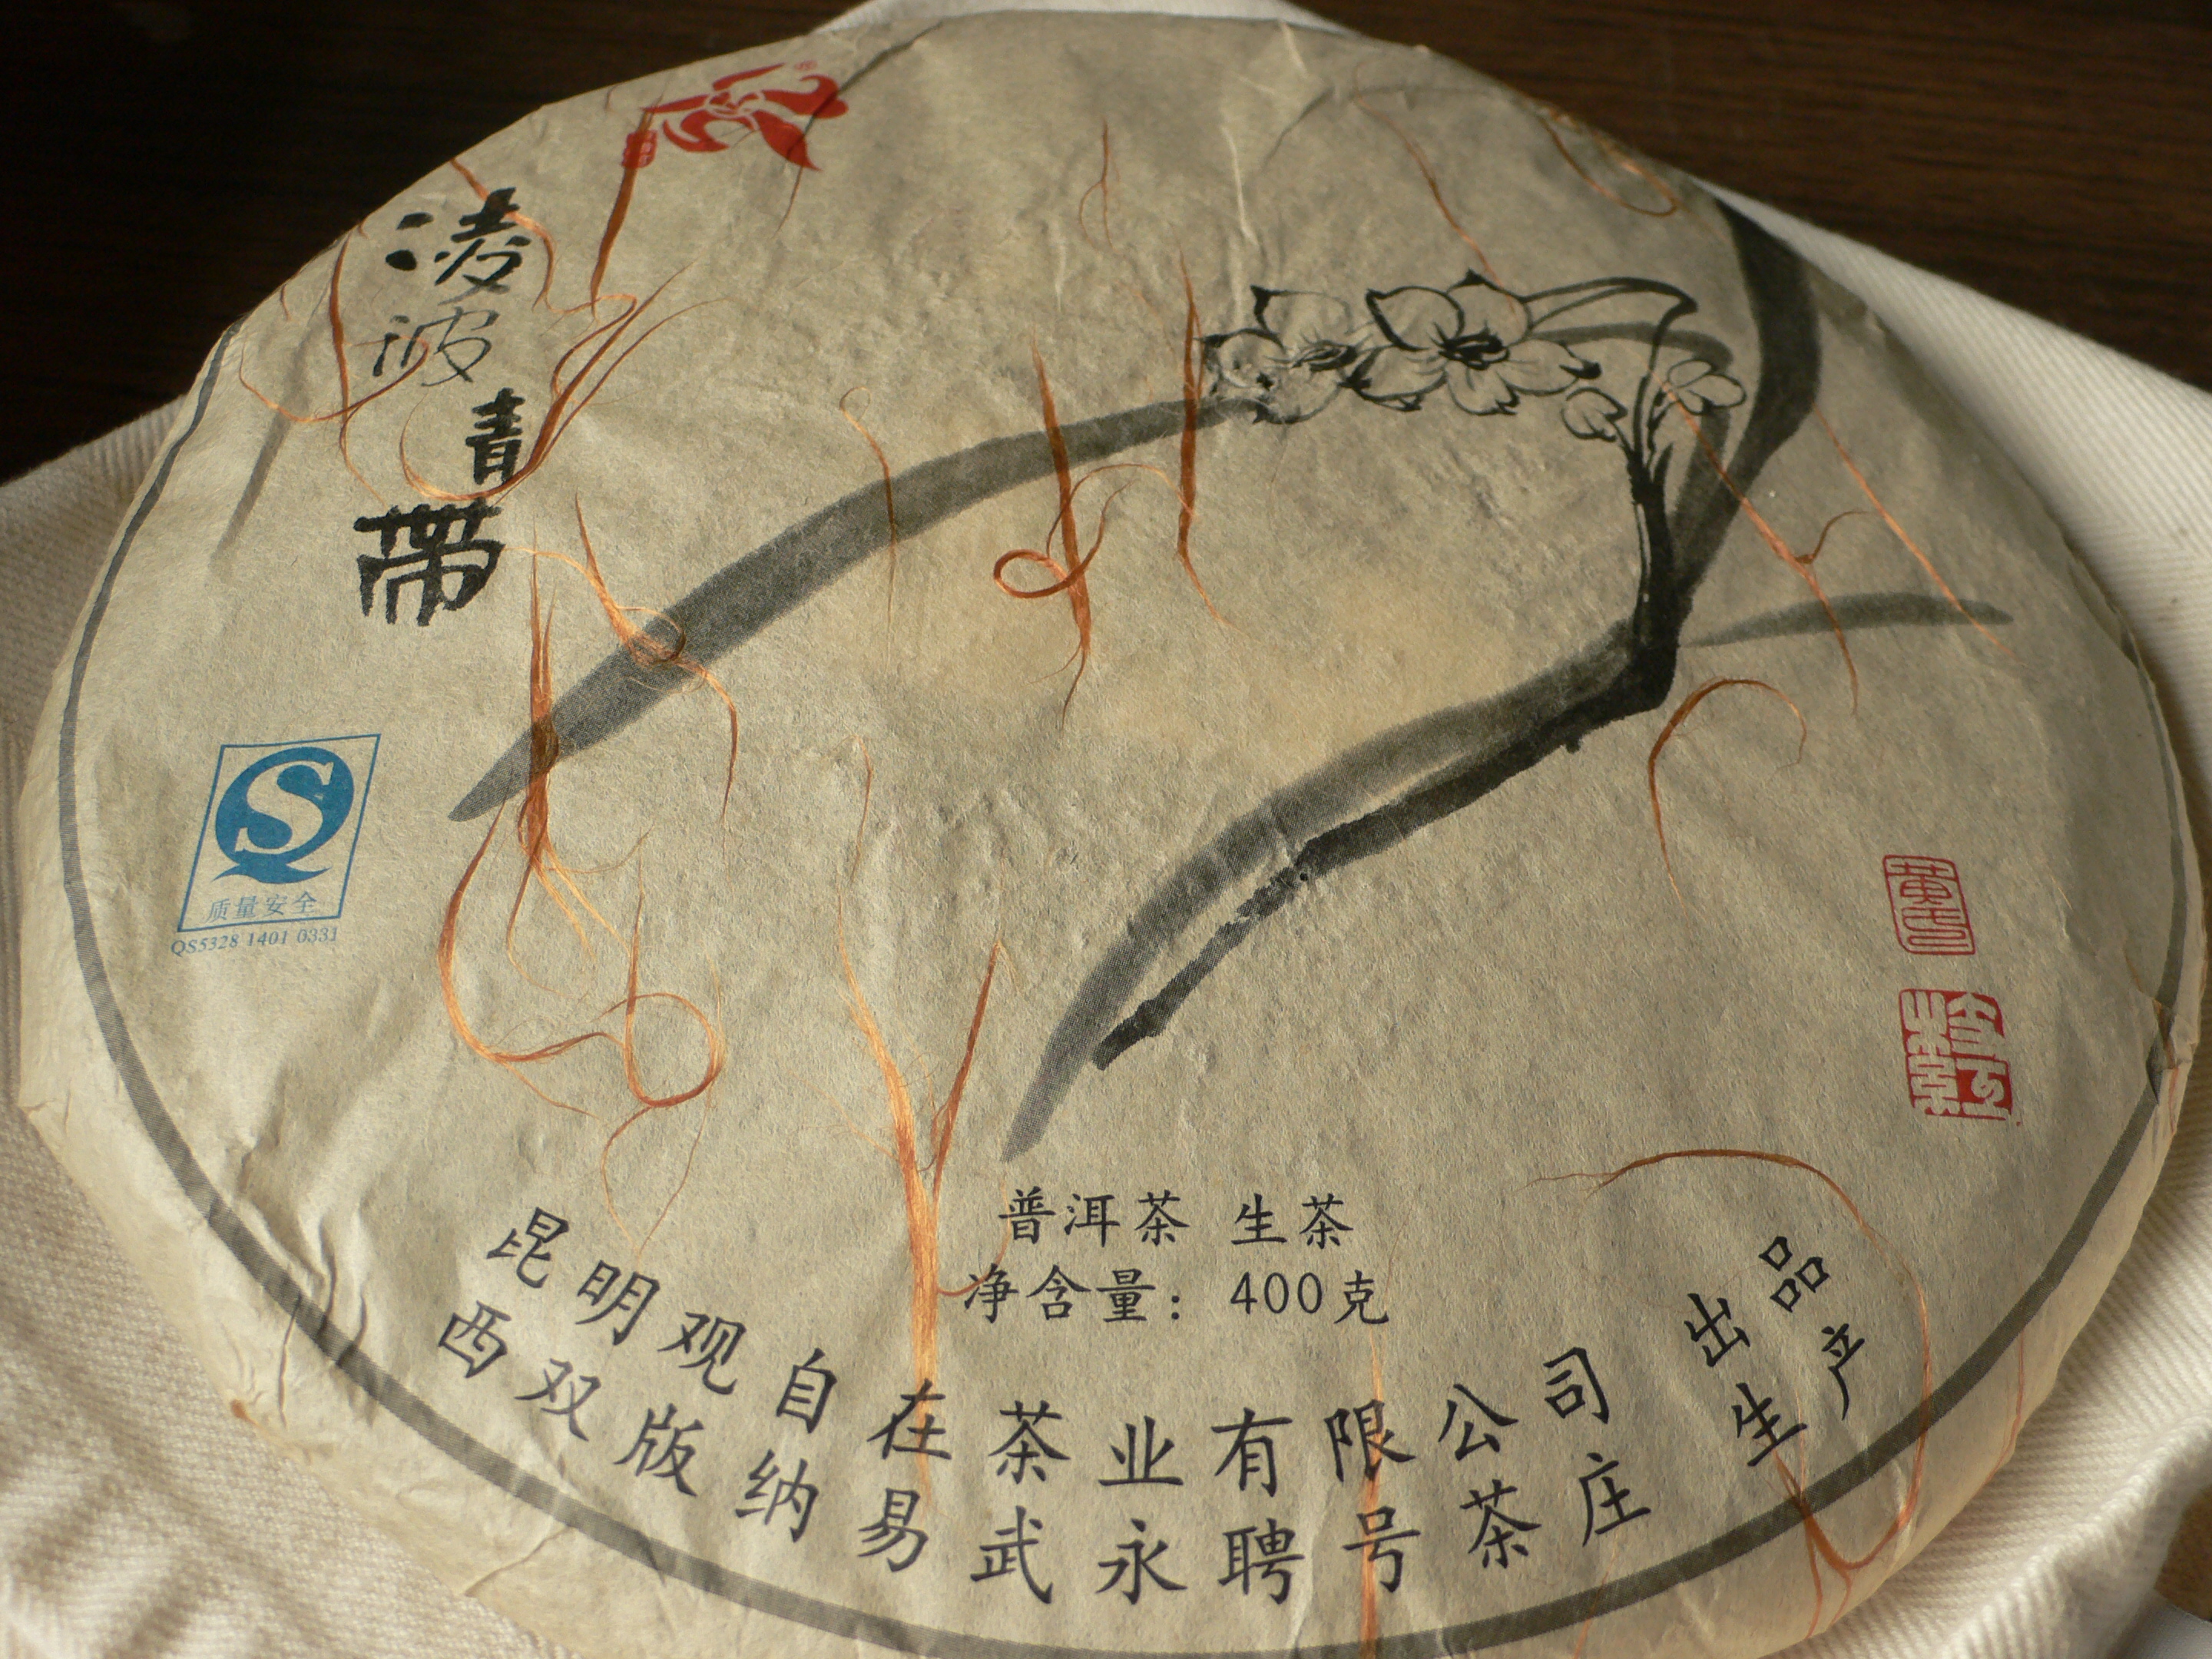 凌波
青带
质量安全
QS5328 1401 0331
普洱茶 生茶
净含量：400克
昆明观自在茶业有限公司 出品
西双版纳易武永聘号茶庄 生产